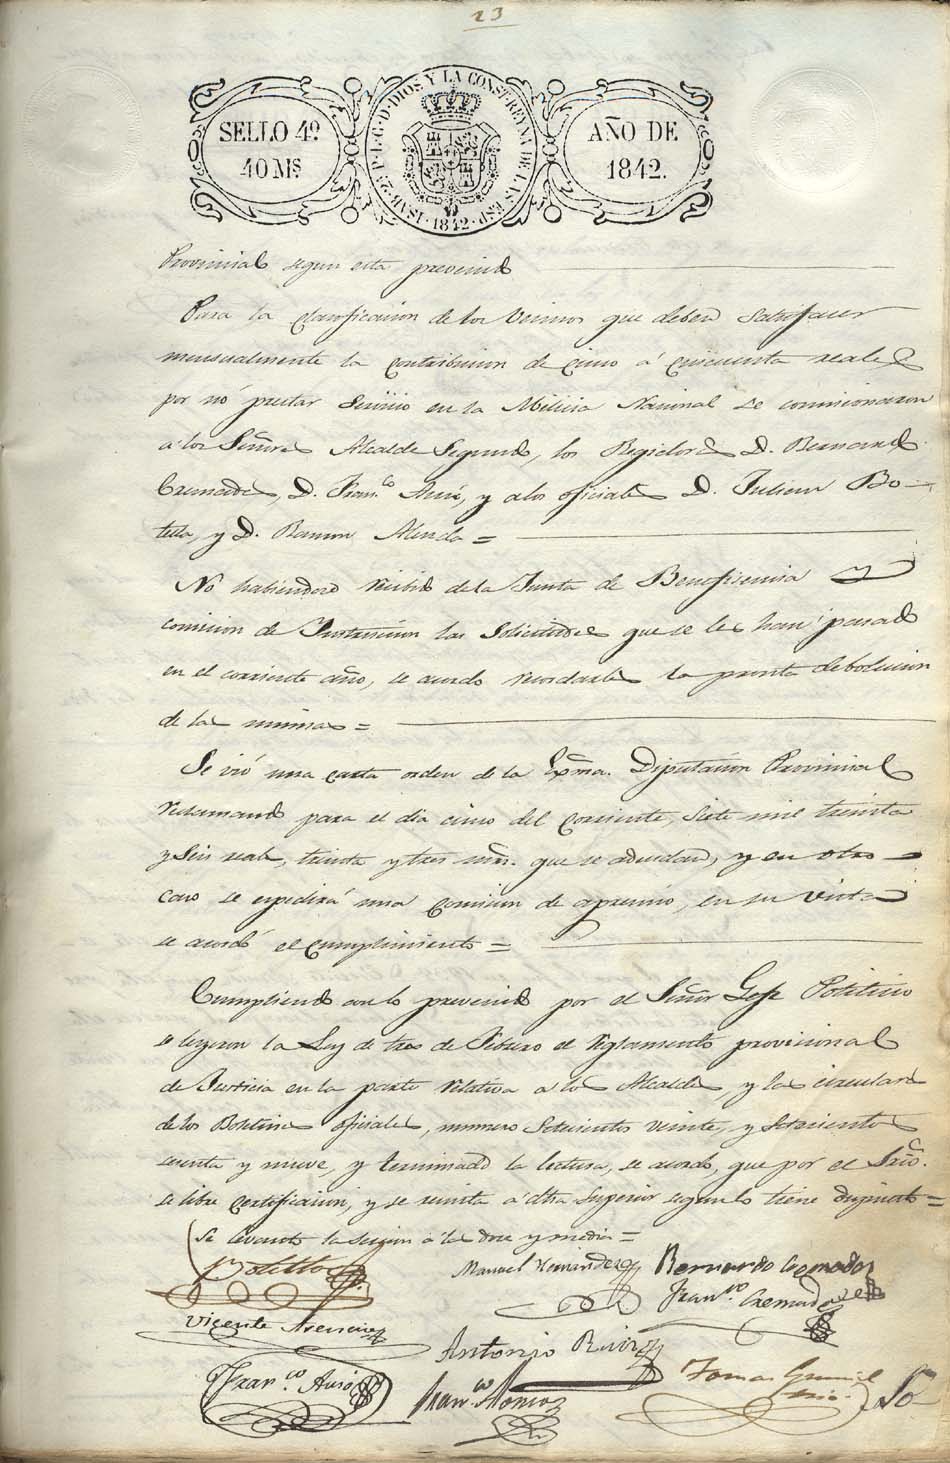 23
SELLO 4º
40 Ms.
ISAB. 2ª P. L. G. D. DIOS Y LA CONST. REYNA DE LAS ESP. 1842
AÑO DE
1842.
Provincial segun esta prevenido
Para la clasificacion de los Vecinos que deben satisfacer
mensualmente la contribucion de cinco á cincuenta reales
por nó prestar servicio en la Milicia Nacional se comisionaron
a los Señores Alcalde Segundo, los Regidores D. Bernardo
Cremades, D. Fran.co Ausó, y a los oficiales D. Julian Bo-
tella, y D. Ramon Alenda =
No habiendose recibido de la Junta de Beneficencia y
comision de Instruccion las Solicitudes que se les han pasado
en el corriente año, se acordo recordarles la pronta debolucion
de las mismas =
Se vió una carta orden de la Exma. Diputacion Provincial
reclamando para el dia cinco del corriente, siete mil treinta
y seis reales, treinta y tres mrs. que se adeudan, y en otro
caso se espedirá una Comision de apremio, en su vista
se acordó el cumplimiento =
Cumpliendo con lo prevenido por el Señor Gefe Politico
se leyeron la Ley de tres de Febrero el reglamento provisional
de Justicia en la parte relativa a los Alcaldes, y las circulares
de los Boletines oficiales, numero setecientos veinte, y setecientos
sesenta y nueve, y terminada la lectura, se acordo, que por el Srio.
se libre certificacion, y se remita a dha Superior segun lo tiene dispuesto =
Se levantó la sesion a las doce y media =
Botella
Manuel Hernandez
Bernardo Cremades
Fran.co Cremades
Vicente Asencio
Antonio
Fran.co Ausó
Fran.co Alonso
Tomas
Srio.